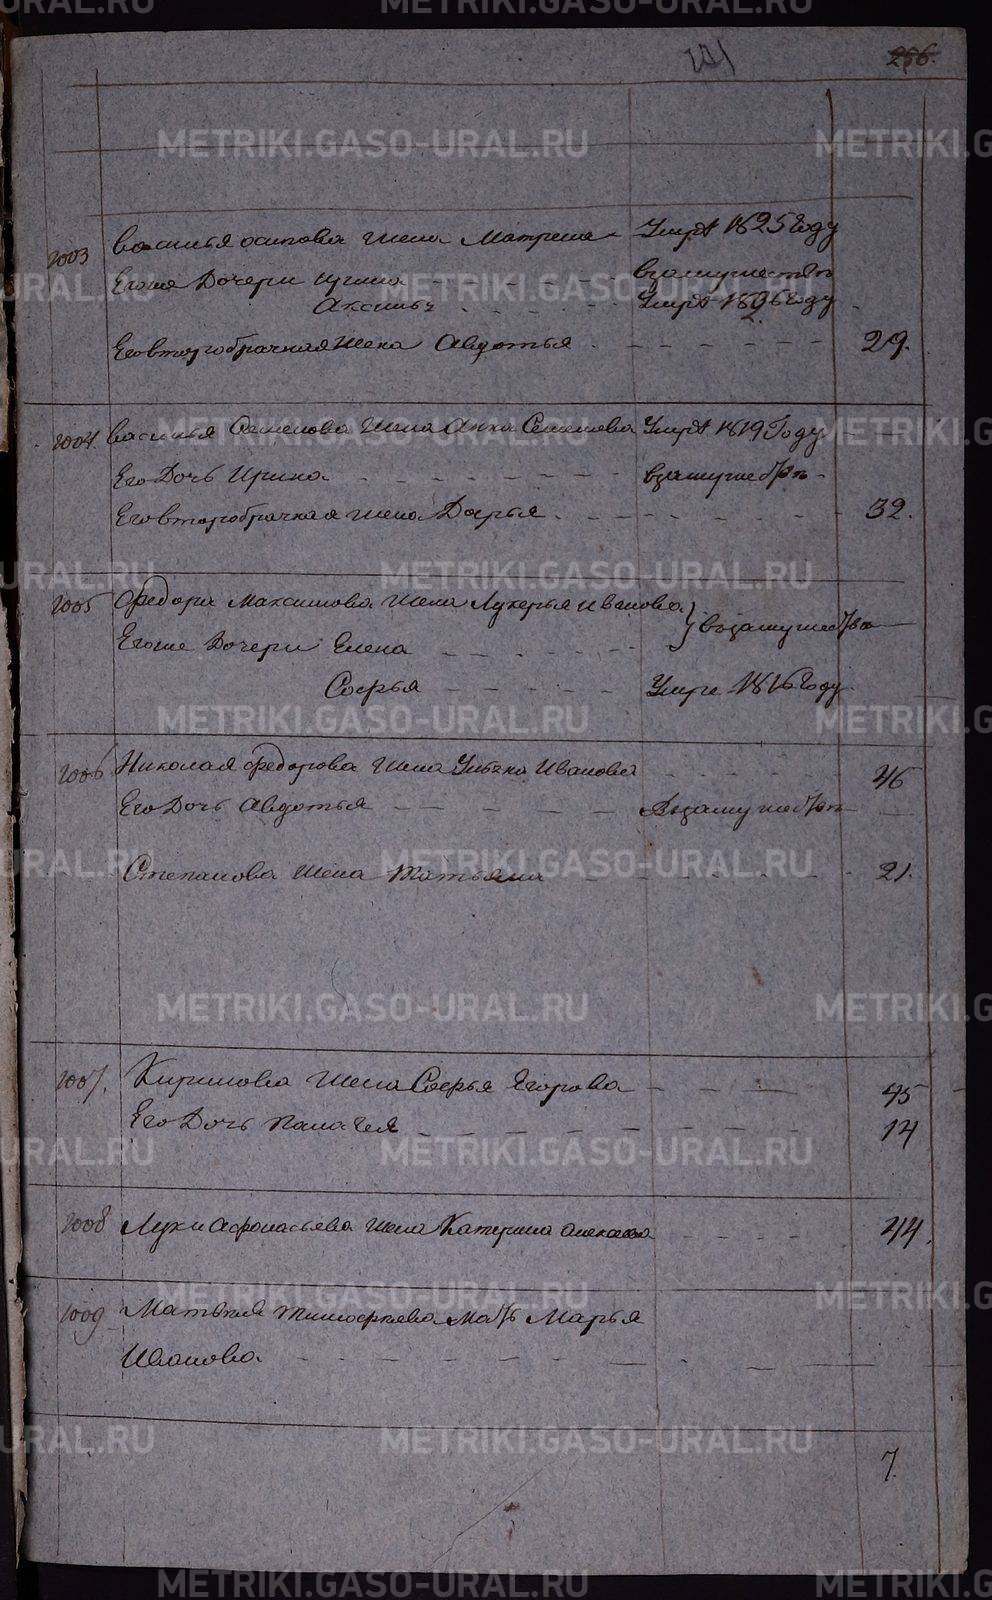 256.
1003 Василья осипова жена Матрена умре 1825 году
Егоже Дочери Ирина взамужестве
Аксинья умре 1826 году
Его второбрачная жена Авдотья 29.
1004. Василья Семенова жена Анна Семенова умре 1819 Году
Его Дочь Ирина взамужестве
Его второбрачная жена Дарья 32.
1005 Федора Максимова жена Лукерья Иванова
Егоже Дочери Елена взамужестве
Софья умре 1816 Году
1006 Николая Федорова жена Ульяна Иванова 46
Его Дочь Авдотья взамужестве
Степанова жена Татьяна 21.
1007. Кирилова жена Софья Егорова 45
Его Дочь Палагея 14
1008 Луки Афонасьева жена Катерина 44.
1009 Матвея Тимофеева Мать Марья
Иванова
7.
METRIKI.GASO-URAL.RU